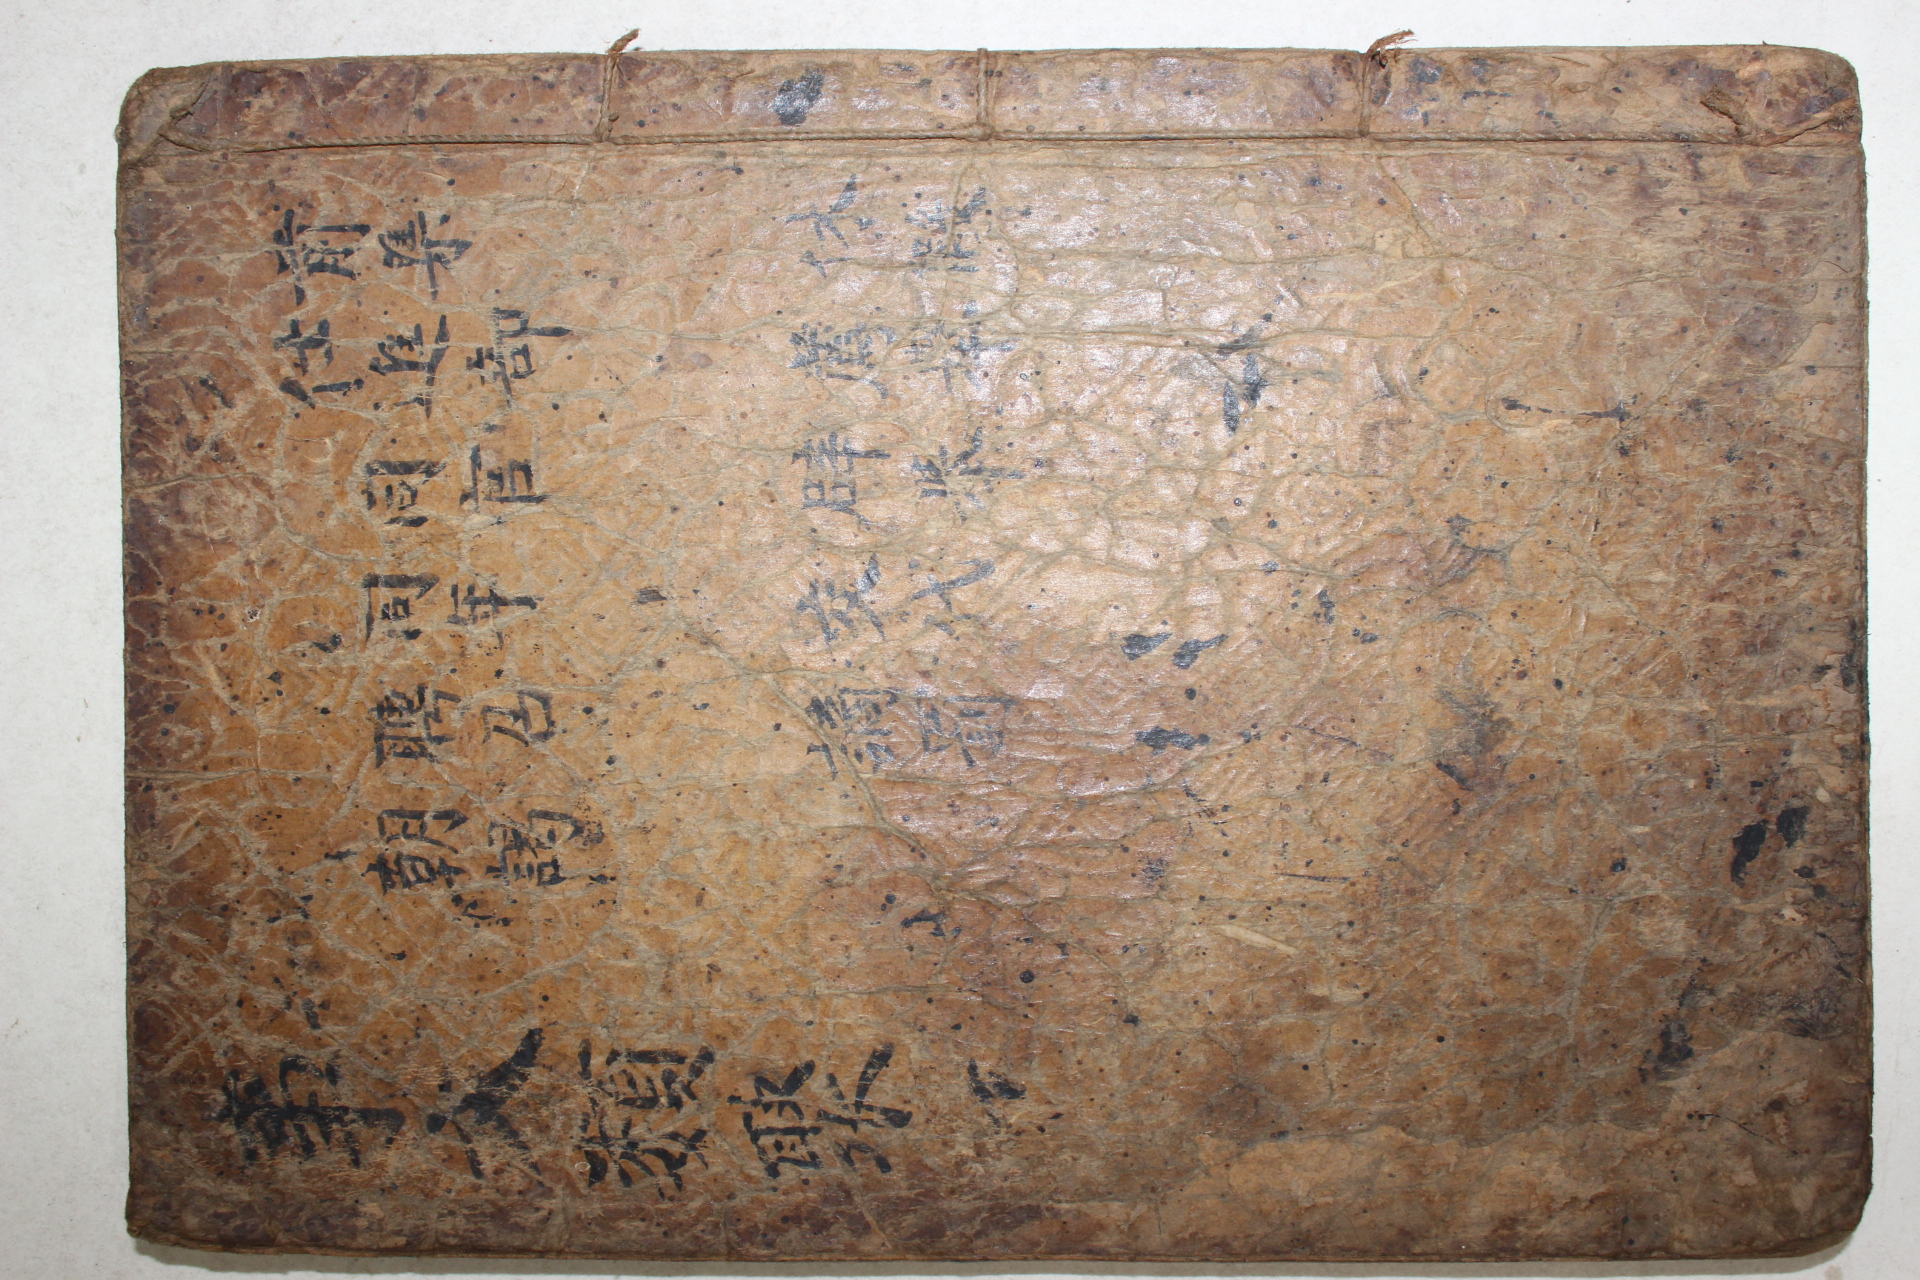 前集
仕進部
同官
同年
聘召
朝謁
休假
薦擧
辟举
交代
謫罰
事文類聚